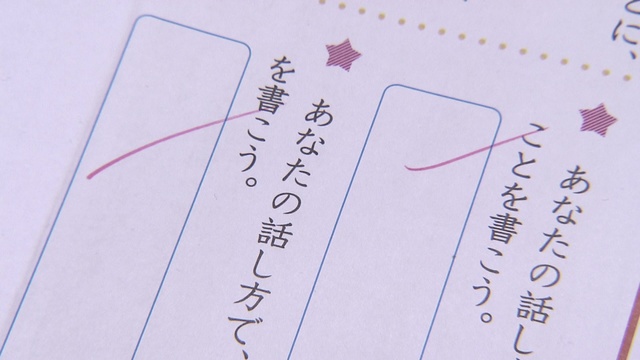 とに、
あなたの話し
ことを書こう。
あなたの話し方で、
を書こう。